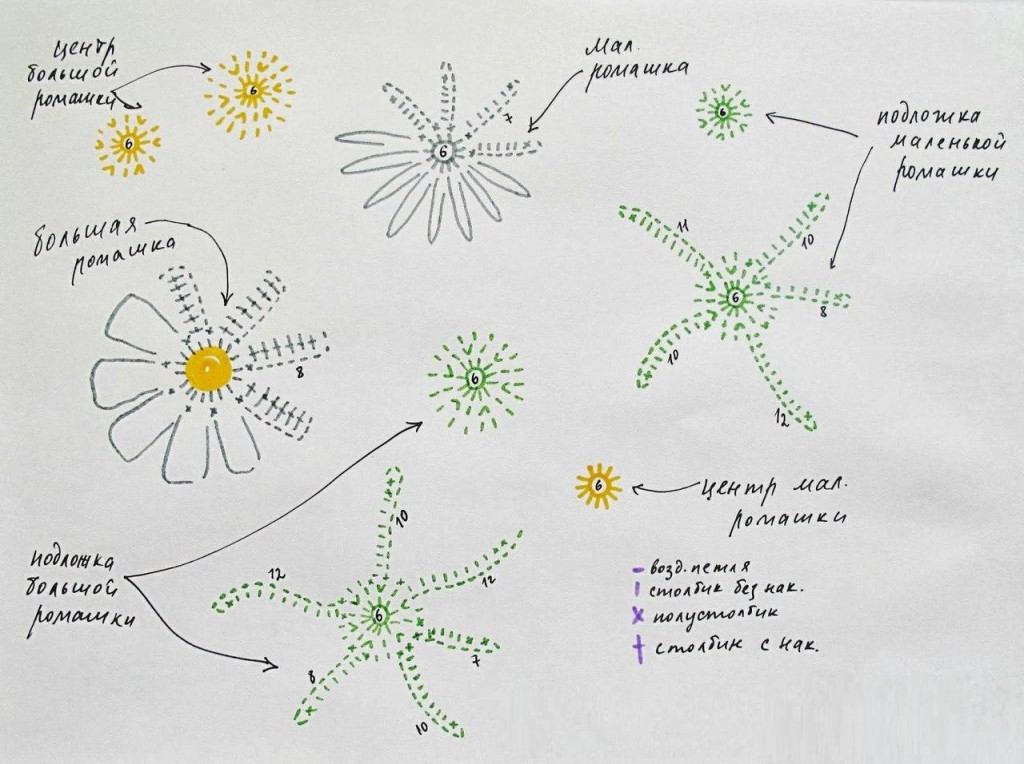 центр
большой
ромашки
6
6
мал.
ромашка
7
6
6
подложка
маленькой
ромашки
большая
ромашка
8
11
10
6
8
10
12
6
6
центр мал.
ромашки
подложка
большой
ромашки
10
12
12
6
7
8
10
возд. петля
столбик без нак.
полустолбик
столбик с нак.